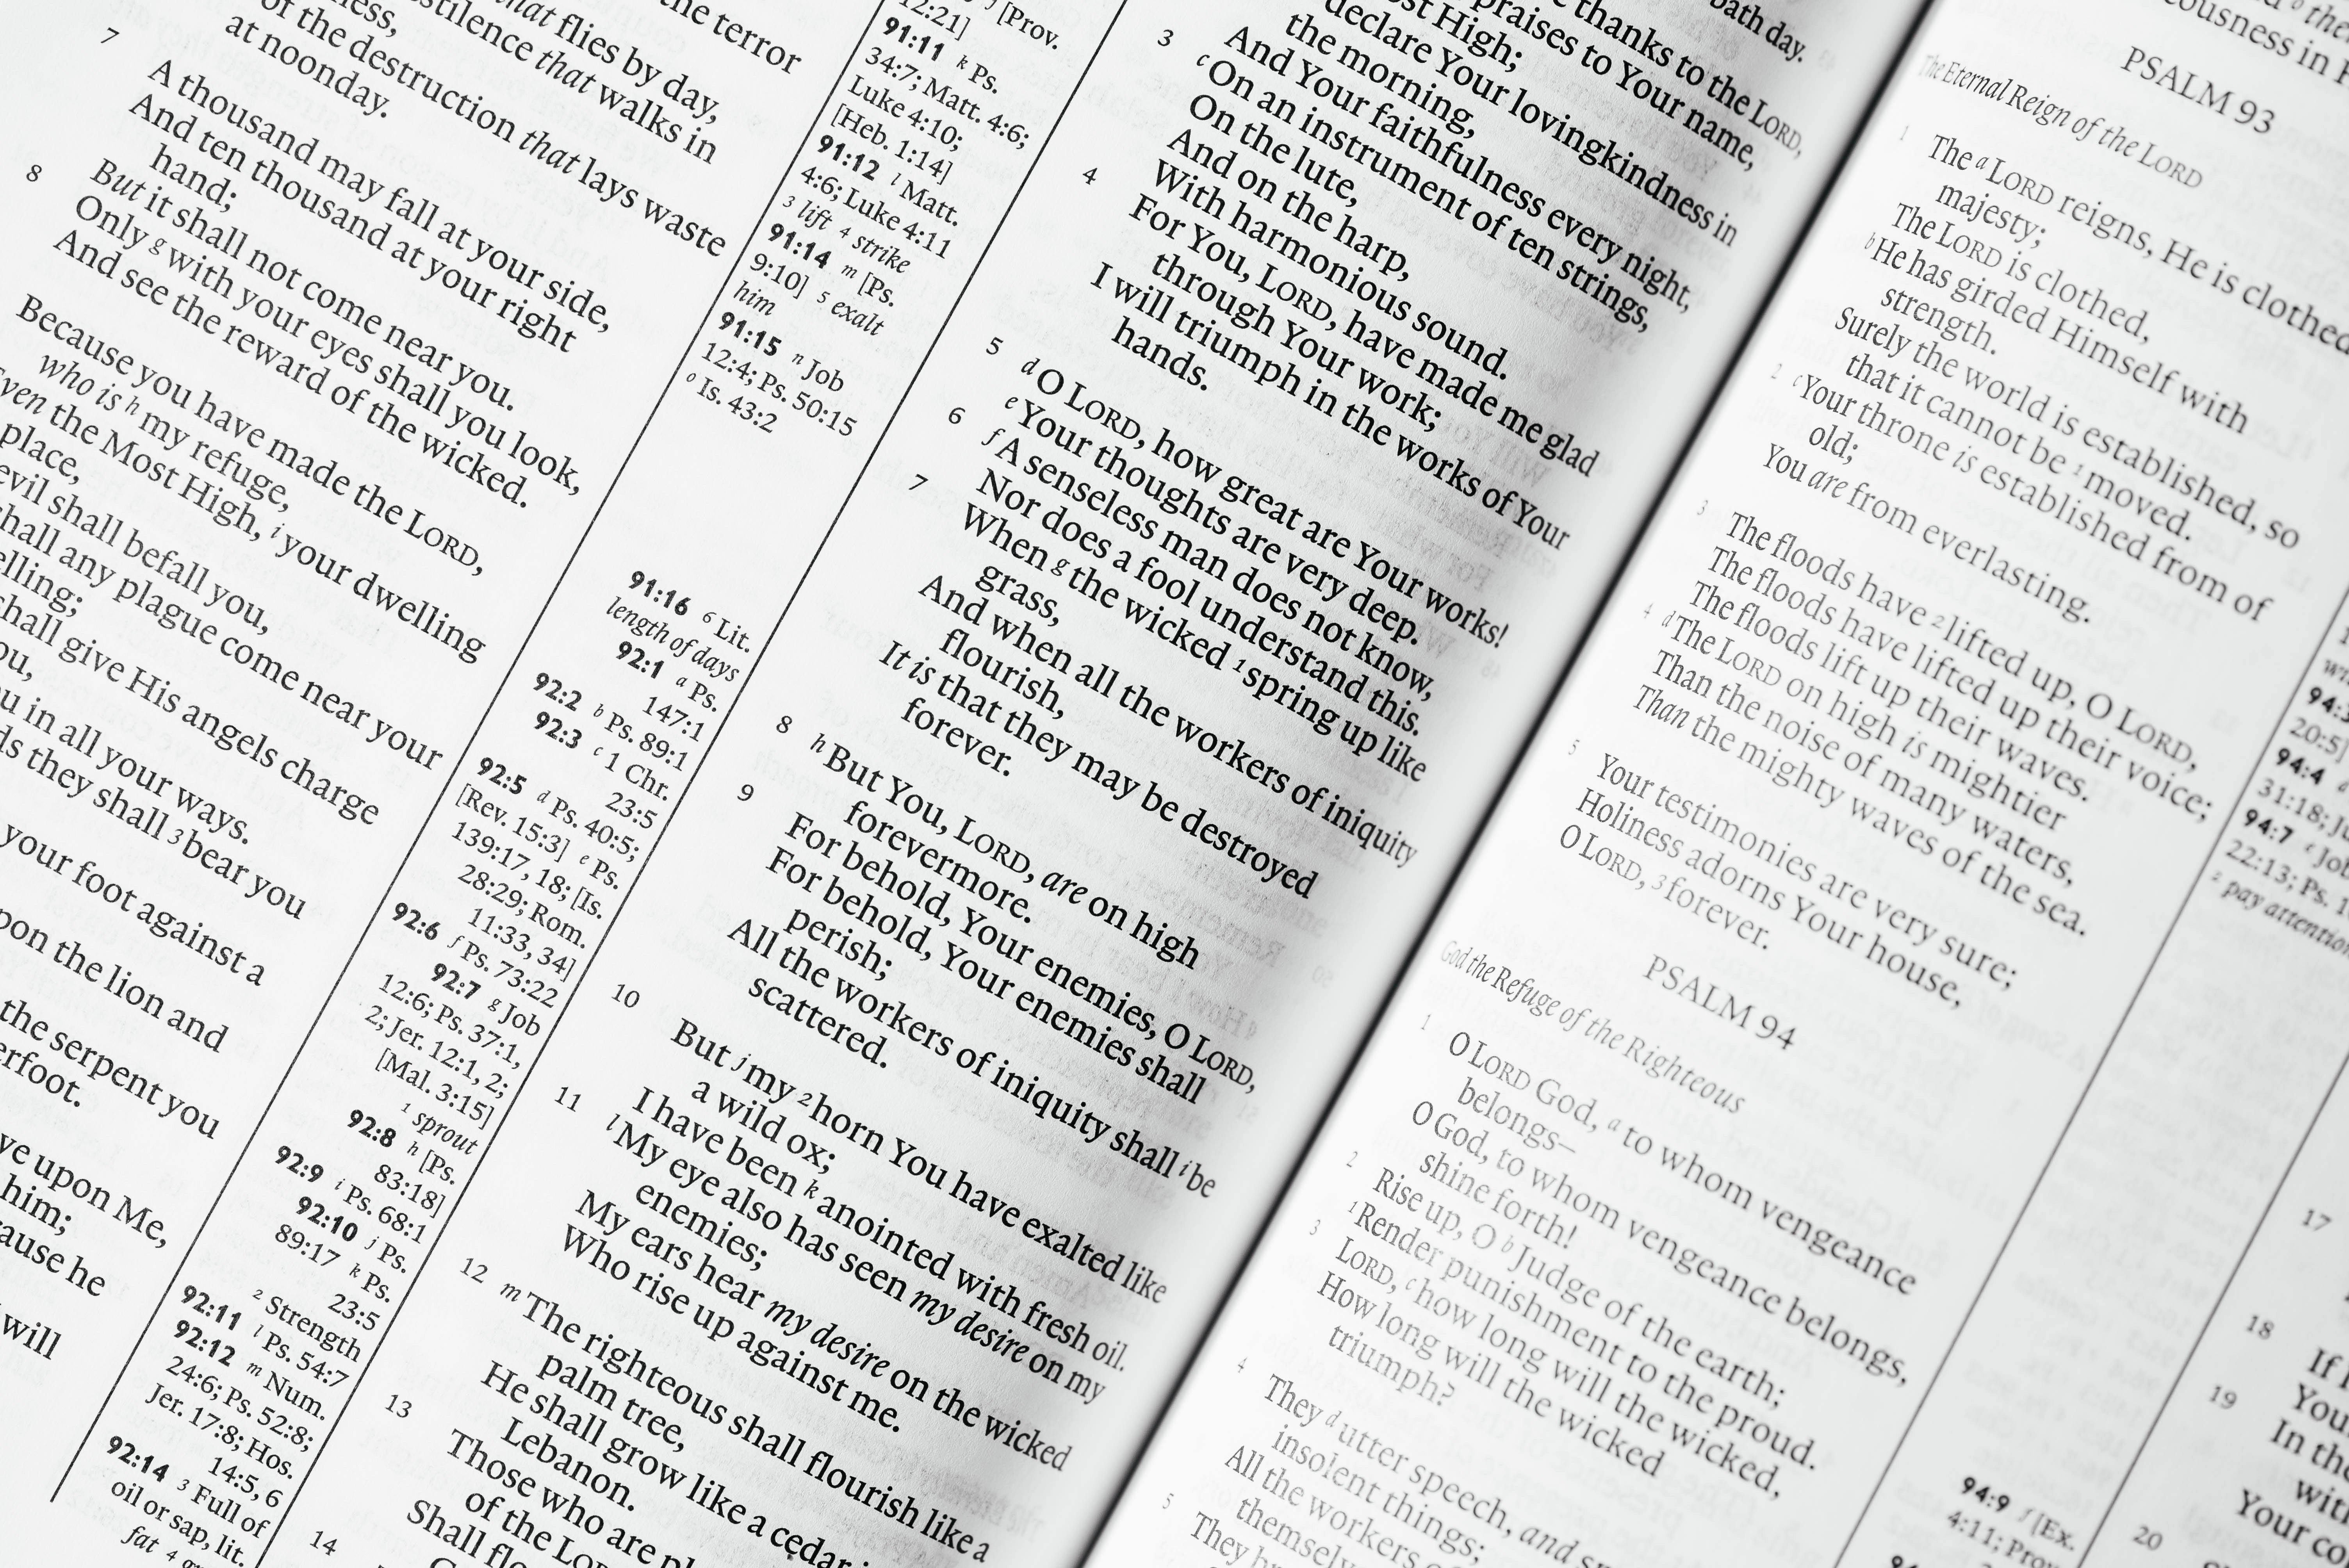 the terror
that flies by day,
that walks in
of the destruction that lays waste
at noonday.
7
A thousand may fall at your side,
And ten thousand at your right
hand;
8
But it shall not come near you.
Only g with your eyes shall you look,
And see the reward of the wicked.
Because you have made the LORD,
who is h my refuge,
the Most High, i your dwelling
place,
evil shall befall you,
any plague come near your
shall give His angels charge
in all your ways.
they shall 3 bear you
your foot against a
the lion and
the serpent you
upon Me,
him;
he
will
[Prov.
12:21]
91:11 k Ps.
34:7; Matt. 4:6;
Luke 4:10;
[Heb. 1:14]
91:12 l Matt.
4:6; Luke 4:11
3 lift 4 strike
91:14 m [Ps.
9:10] 5 exalt
him
91:15 n Job
12:4; Ps. 50:15
o Is. 43:2
91:16 6 Lit.
length of days
92:1 a Ps.
147:1
92:2 b Ps. 89:1
92:3 c 1 Chr.
23:5
92:5 d Ps. 40:5;
[Rev. 15:3] e Ps.
139:17, 18; [Is.
28:29; Rom.
11:33, 34]
92:6 f Ps. 73:22
92:7 g Job
12:6; Ps. 37:1,
2; Jer. 12:1, 2;
[Mal. 3:15]
1 sprout
92:8 h [Ps.
83:18]
92:9 i Ps. 68:1
92:10 j Ps.
89:17 k Ps.
23:5
2 Strength
92:11 l Ps. 54:7
92:12 m Num.
24:6; Ps. 52:8;
Jer. 17:8; Hos.
14:5, 6
92:14 3 Full of
oil or sap, lit.
fat 4
day.
thanks to the LORD,
praises to Your name,
High;
3
declare Your lovingkindness in
the morning,
And Your faithfulness every night,
c On an instrument of ten strings,
On the lute,
And on the harp,
4
With harmonious sound.
For You, LORD, have made me glad
through Your work;
I will triumph in the works of Your
hands.
5
d O LORD, how great are Your works!
e Your thoughts are very deep.
6
f A senseless man does not know,
Nor does a fool understand this.
7
When g the wicked 1 spring up like
grass,
And when all the workers of iniquity
flourish,
It is that they may be destroyed
forever.
8
h But You, LORD, are on high
forevermore.
9
For behold, Your enemies, O LORD,
For behold, Your enemies shall
perish;
All the workers of iniquity shall i be
scattered.
10
But j my 2 horn You have exalted like
a wild ox;
I have been k anointed with fresh oil.
11
l My eye also has seen my desire on my
enemies;
My ears hear my desire on the wicked
Who rise up against me.
12
m The righteous shall flourish like a
palm tree,
He shall grow like a cedar
Lebanon.
13
Those who are
of the LORD
14
Shall
PSALM 93
The Eternal Reign of the LORD
1
The a LORD reigns, He is clothed
majesty;
The LORD is clothed,
b He has girded Himself with
strength.
Surely the world is established, so
that it cannot be 1 moved.
2
c Your throne is established from of
old;
You are from everlasting.
3
The floods have 2 lifted up, O LORD,
The floods have lifted up their voice;
The floods lift up their waves.
4
d The LORD on high is mightier
Than the noise of many waters,
Than the mighty waves of the sea.
5
Your testimonies are very sure;
Holiness adorns Your house,
O LORD, 3 forever.
PSALM 94
God the Refuge of the Righteous
1
O LORD God, a to whom vengeance
belongs—
O God, to whom vengeance belongs,
shine forth!
2
Rise up, O b Judge of the earth;
1 Render punishment to the proud.
3
LORD, c how long will the wicked,
How long will the wicked
triumph?
4
They d utter speech, and
insolent things;
All the workers
5
They
20:5]
94:4
31:18;
94:7 e Job
22:13; Ps.
2 pay attention
94:9 f [Ex.
4:11; Prov.
17
18
If
19
In the
20
Your